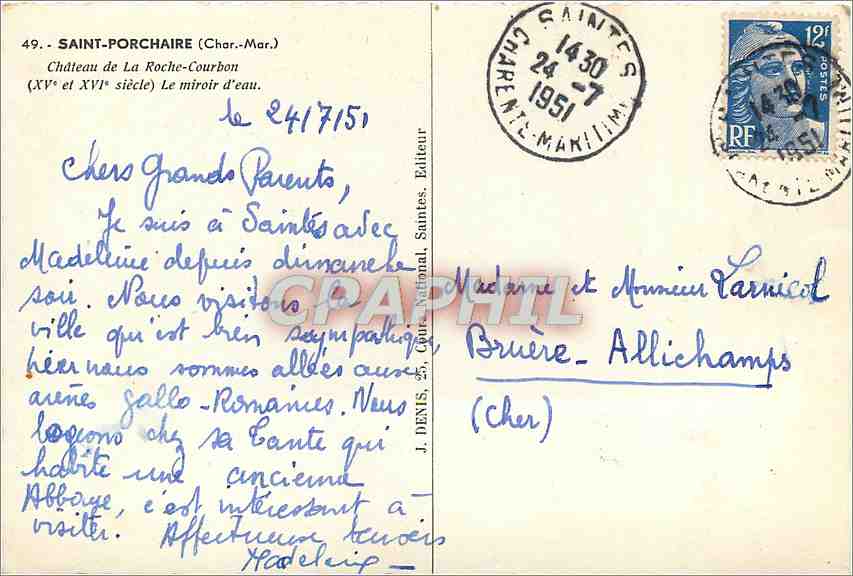 49. - SAINT-PORCHAIRE (Char.-Mar.)
Château de La Roche-Courbon
(XVe et XVIe siècle) Le miroir d'eau.
le 24/7/51
Chers Grands Parents,
Je suis à Saintes avec
Madeleine depuis dimanche
soir. Nous visitons la
ville qu'est bien sympathique,
hier nous sommes allées aux
arènes gallo-Romaines. Nous
logeons chez sa tante qui
habite une ancienne
Abbaye, c'est intéressant à
visiter. Affectueux
Madeleine
J. DENIS, 25, Cours National, Saintes. Editeur
SAINTES
14 30
24 -7
1951
CHARENTE-MARITIME
12f
POSTES
RF
SAINTES
14 30
24 -7
1951
CHARENTE-MARITIME
Madame et Monsieur Larnicol
Bruère-Allichamps
(Cher)
CPAPHIL